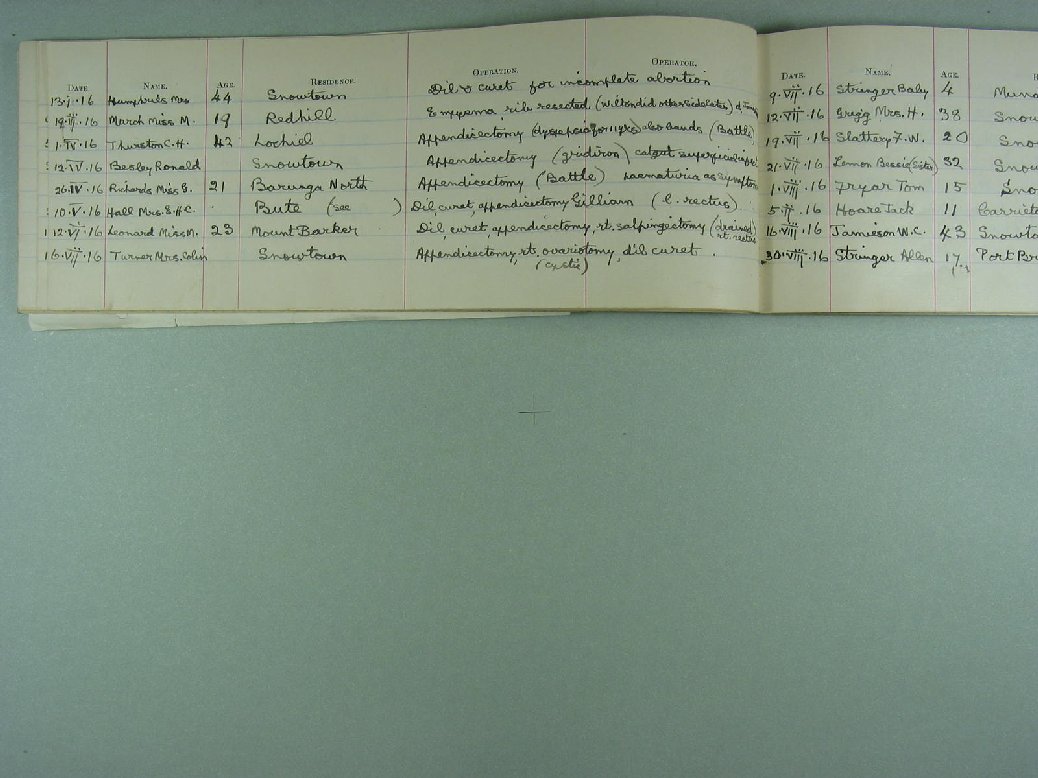 DATE NAME. AGE. RESIDENCE. OPERATION. OPERATOR.
13·I·16 Humphris Mrs 44 Snowtown Dil & curet for incomplete abortion
19·II·16 March Miss M. 19 Redhill Empyema, rib resected,
1·IV·16 Thurston C.H. 42 Lochiel Appendicectomy (dyspepsia for 11 yrs) also bands (Battle)
12·IV·16 Besley Ronald Snowtown Appendicectomy (gridiron) catgut
26·IV·16 Richards Miss E. 21 Barunga North Appendicectomy (Battle) haematuria as symptom
10·V·16 Hall Mrs. E.H.C. Bute (see ) Dil, curet, appendicectomy Gilliam (l. rectus)
12·VI·16 Leonard Miss M. 23 Mount Barker Dil, curet, appendicectomy, rt. salpingectomy (drained)
rt. rectus
16·VI·16 Turner Mrs. Colin Snowtown Appendicectomy, rt. ovariotomy, dil curet.
(cystic)
DATE. NAME. AGE. R
9·VII·16 Stringer Baby 4
12·VII·16 Grigg Mrs. H. 38 Snow
19·VII·16 Slattery F.W. 20 Sno
21·VII·16 Lemon Bessie (Sister) 32 Snow
1·VIII·16 Fryar Tom 15 Sno
16 Hoare Jack 11 Carrieto
15·VIII·16 Jamieson W.C. 43 Snowto
30·VIII·16 Stringer Allen 17 Port Br